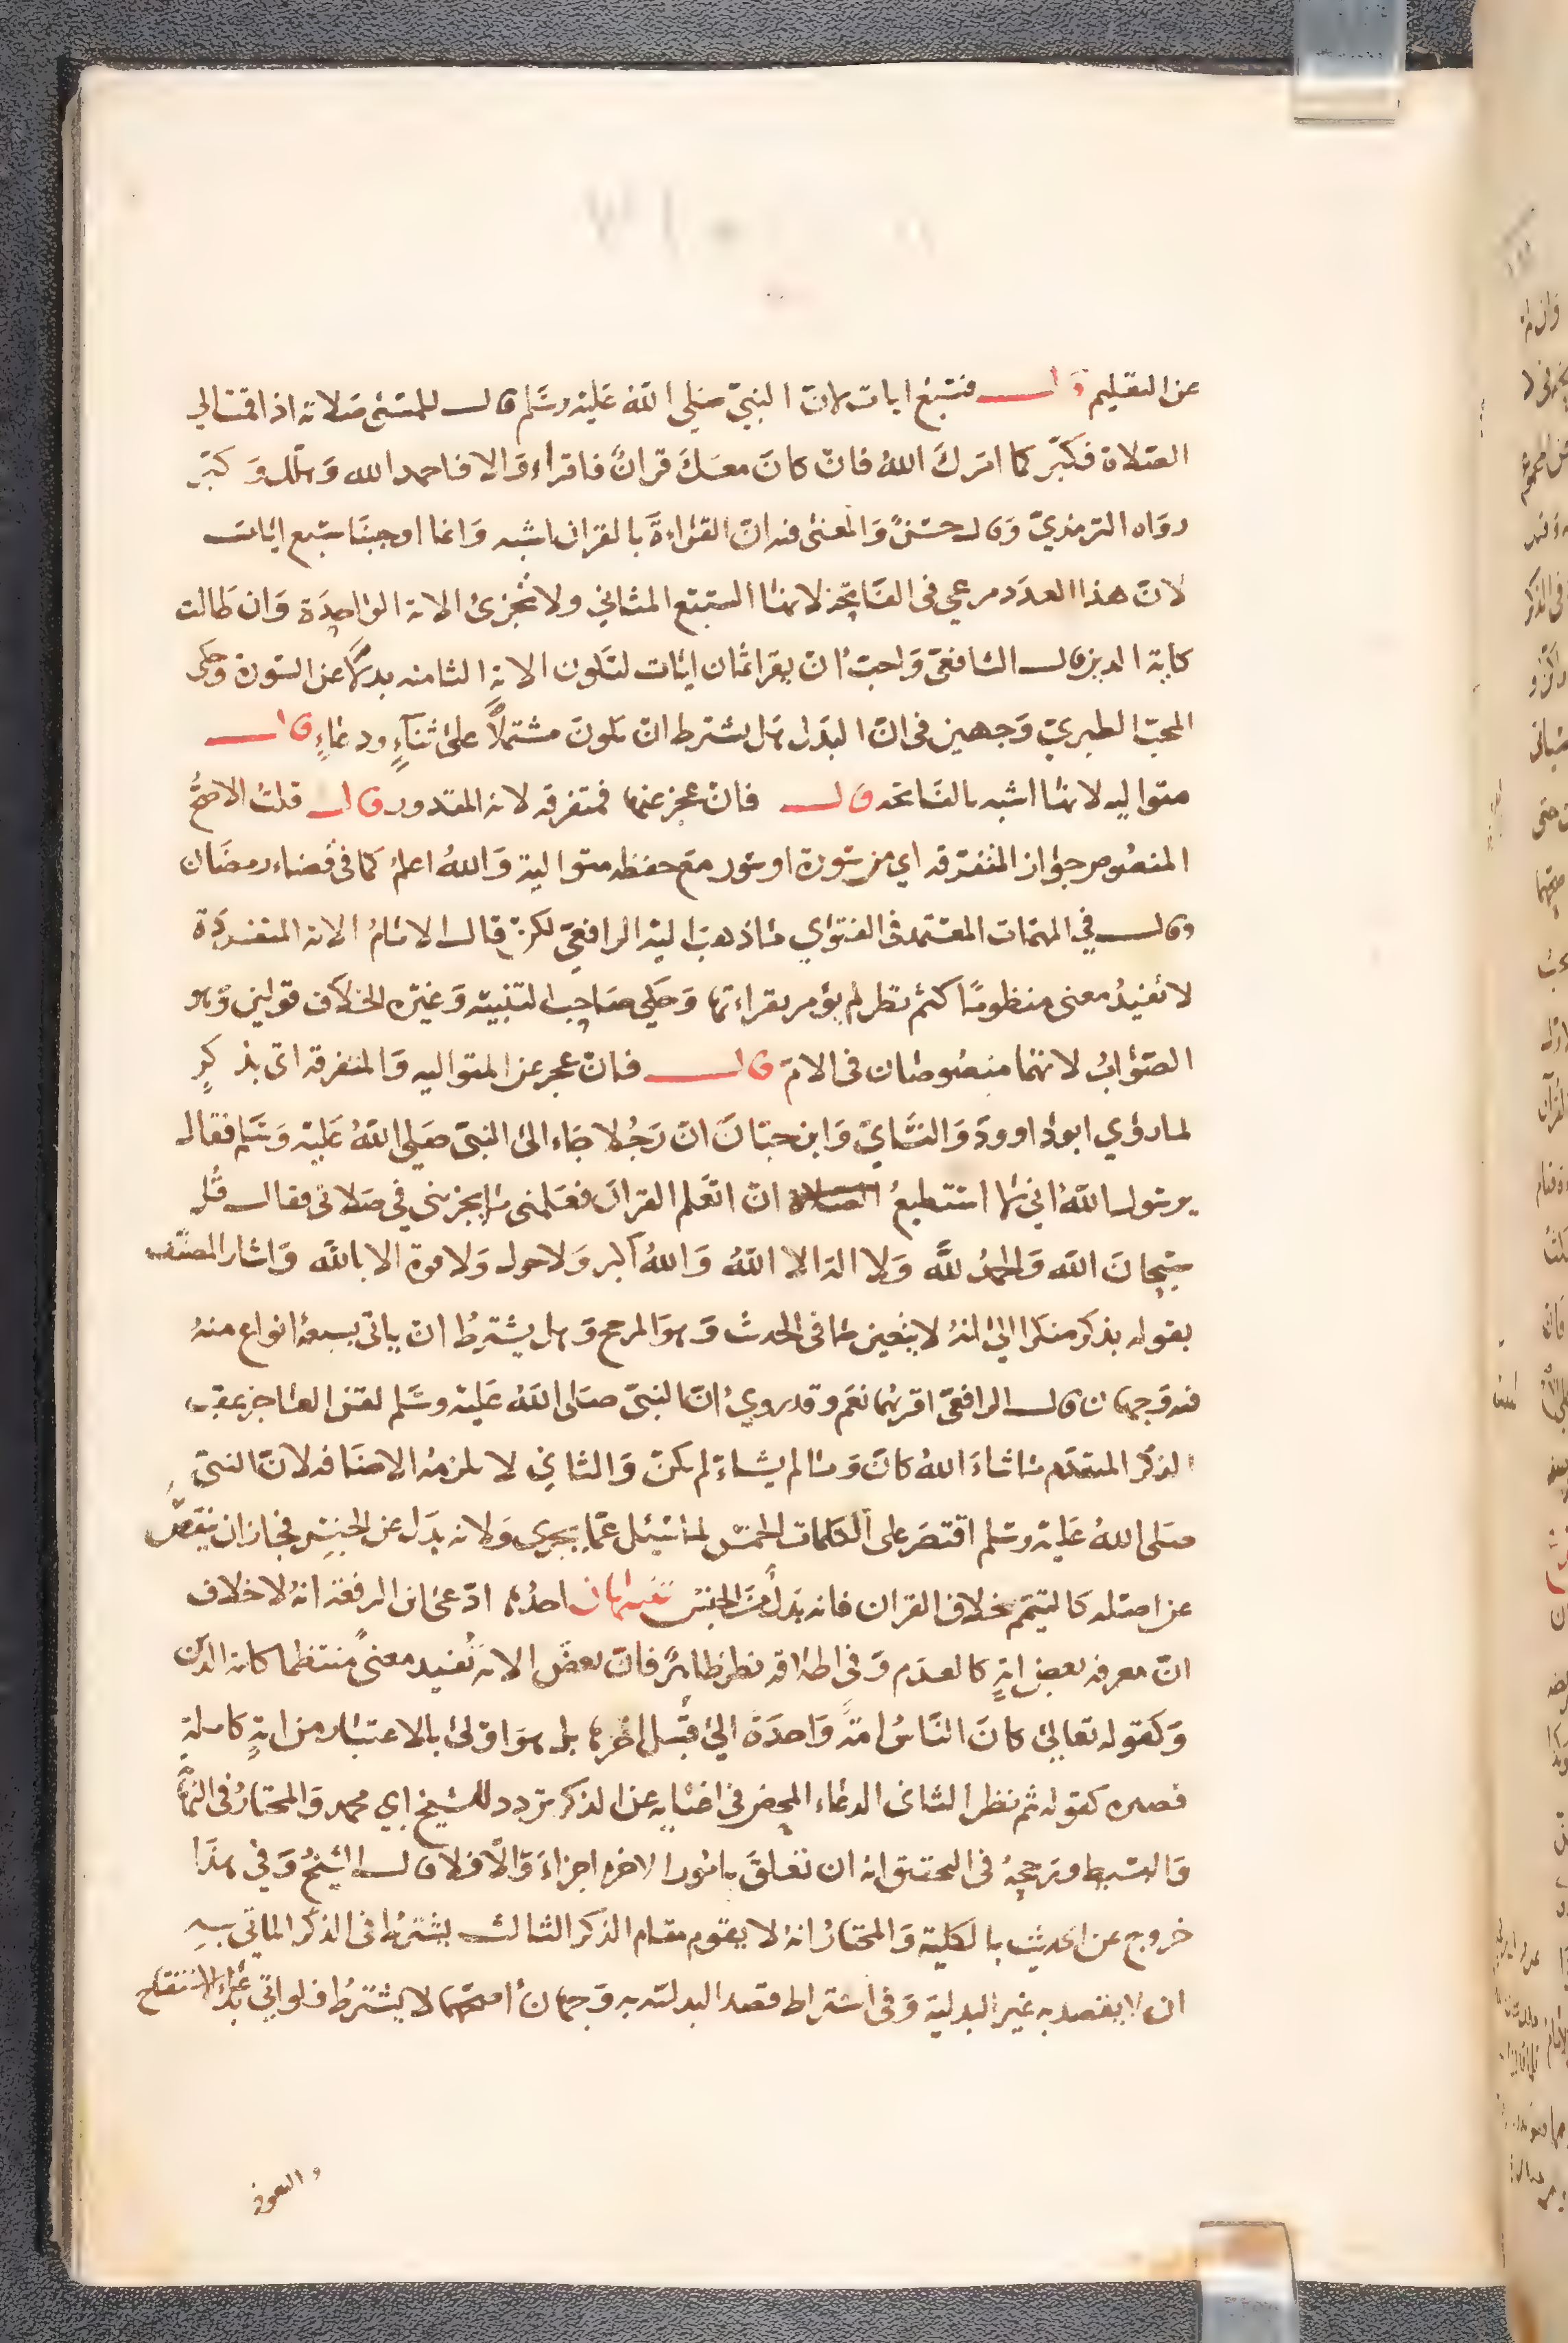 عن التعليم قال فسبع ايات لان النبي صلى الله عليه وسلم قال للمسئ صلاته اذا قمت الى
الصلاة فكبر كما امرك الله فان كان معك قران فاقراء والا فاحمد الله وهلل وكبر
رواه الترمذي وقال حسن والمعنى فيه ان القراءة بالقران اشبه وانما اوجبنا سبع ايات
لان هذا العدد مرعي في الفاتحة لانها السبع المثاني ولا تجزئ الاية الواحدة وان طالت
كاية الدين قال الشافعي واحب ان يقرا ثمان ايات لتكون الاية الثامنه بدلا عن السورة وحكى
المحب الطبري وجهين في ان البدل هل يشترط ان يكون مشتملا على ثناء ودعاء قال
متواليه لانها اشبه بالفاتحه قال فان عجز عنها فمتفرقه لانه المقدور قال قلت الاصح
المنصوص جواز المتفرقه اي من سورة او سور مع حفظه متوالية والله اعلم كما في قضاء رمضان
وقال في المهمات المعتمد في الفتوى ما ذهب اليه الرافعي لكن قال الامام الاية المنفردة
لا تفيد معنى منظوما كثم نظر لم يؤمر بقراءتها وحكى صاحب التنبيه وغيره الخلاف قولين وهو
الصواب لانهما منصوصان في الام قال فان عجز عن المتواليه والمتفرقه اتى بذكر
لما روي ابو داوود والنساي وابن حبان ان رجلا جاء الى النبي صلى الله عليه وسلم فقال
يرسول الله اني لا استطيع ان اتعلم القران فعلمني ما يجزيني في صلاتي فقال قل
سبحان الله والحمد لله ولا اله الا الله والله اكبر ولا حول ولا قوة الا بالله واشار المصنف
بقوله بذكر منكرا الى انه لا يتعين ما في الحدث وهو المرجح وهل يشترط ان ياتي بسبعة انواع منه
فيه وجهان قال الرافعي اقربهما نعم وقد روي ان النبي صلى الله عليه وسلم لقن العاجز عقب
الذكر المتقدم ما شاء الله كان وما لم يشاء لم يكن والثاني لا يلزمه الاضافه لان النبي
صلى الله عليه وسلم اقتصر على الكلمات الخمس لما سئل عما يجزى ولانه بدل عن الجنس فجاز ان ينقص
عن اصله كالتيمم بخلاف القران فانه بدل من الجنس تنبيهان احدها ادعى ابن الرفعه انه لا خلاف
ان معرفه بعض اية كالعدم وفي اطلاقه نظر ظاهر فان بعض الاية تفيد معنى منتظما كاية الدين
وكقوله تعالى كان الناس امة واحدة الى قبيل اخرها بل هو اولى بالاعتبار من اية كاملة
قصيره كقوله ثم نظر الثاني الدعاء المحض في اغنايه عن الذكر تردد للشيخ ابي محمد والمختار في
والبسيط وترجيح في التحقيق انه ان تعلق بامور الاخره اجزاء والا فلا قال الشيخ وفي هذا
خروج عن الحديث بالكلية والمختار انه لا يقوم مقام الذكر الثالث يشترط في الذكر الماتي به
ان لا يقصد به غير البدلية وفي اشتراط قصد البدليه به وجهان اصحهما لا يشترط فلو اتى بدعاء الاستفتاح
والتعوذ